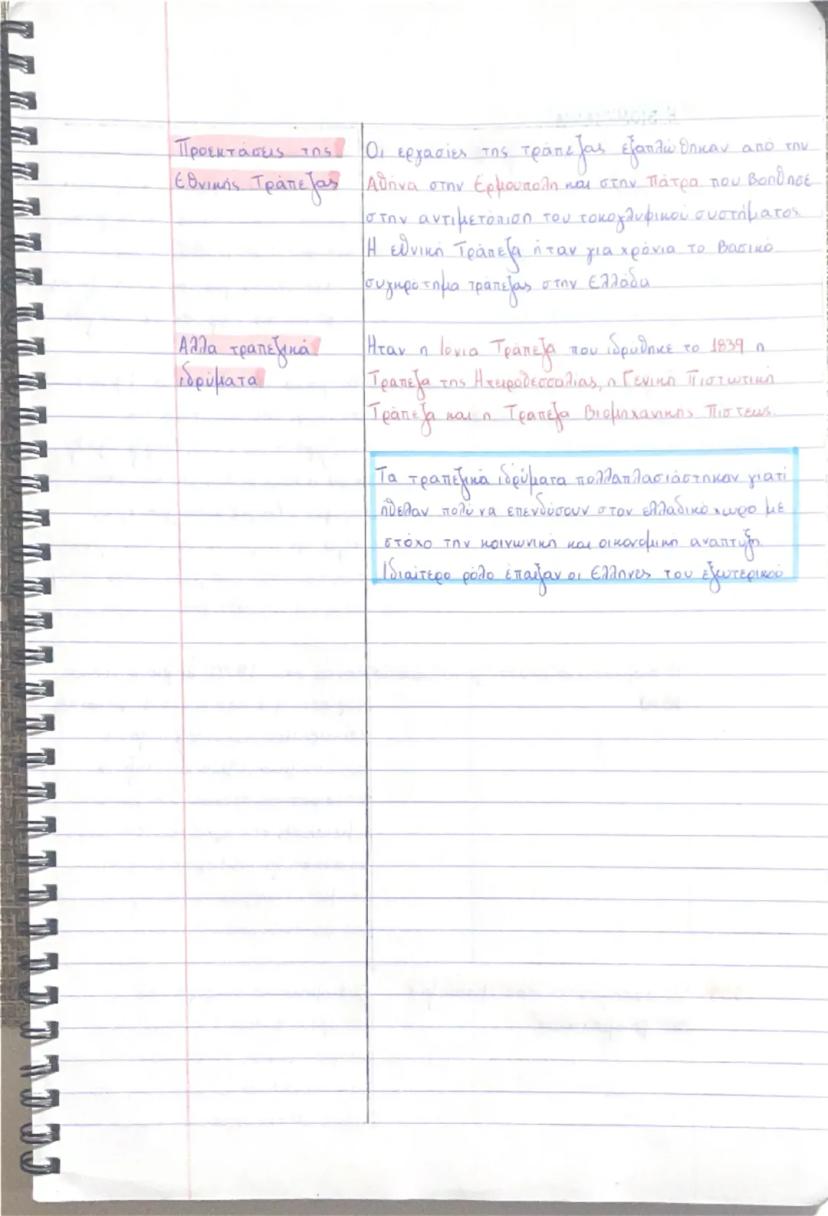 Προεκτάσεις της
Εθνικής Τράπεζας
Οι εργασίες της τράπεζας εξαπλώθηκαν από την
Αθήνα στην Ερμούπολη και στην Πάτρα που βοήθησε
στην αντιμετόπιση του τοκογλυφικού συστήματος
Η εθνική Τράπεζα ήταν για χρόνια το βασικό
συγκρότημα τράπεζας στην Ελλάδα
Αλλα τραπεζικά
ιδρύματα
Ηταν η Ιονια Τράπεζα που ιδρύθηκε το 1839 η
Τραπεζα της Ηπειροθεσσαλίας, η Γενική Πιστωτική
Τράπεζα και η Τραπεζα Βιομηχανικής Πιστεως.
Τα τραπεζικά ιδρύματα πολλαπλασιάστηκαν γιατί
ήθελαν πολύ να επενδύσουν στον ελλαδικό χωρο με
στόχο την κοινωνική και οικονομικη αναπτυξη
Ιδιαίτερο ρόλο έπαιξαν οι Ελληνες του εξωτερικού